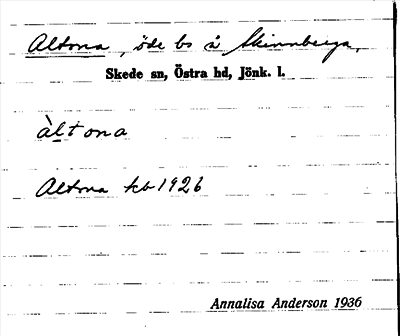 Altona, öde bs å Skinnberga,
Skede sn, Östra hd, Jönk. l.
àltona
Altona kb 1926
Annalisa Anderson 1936